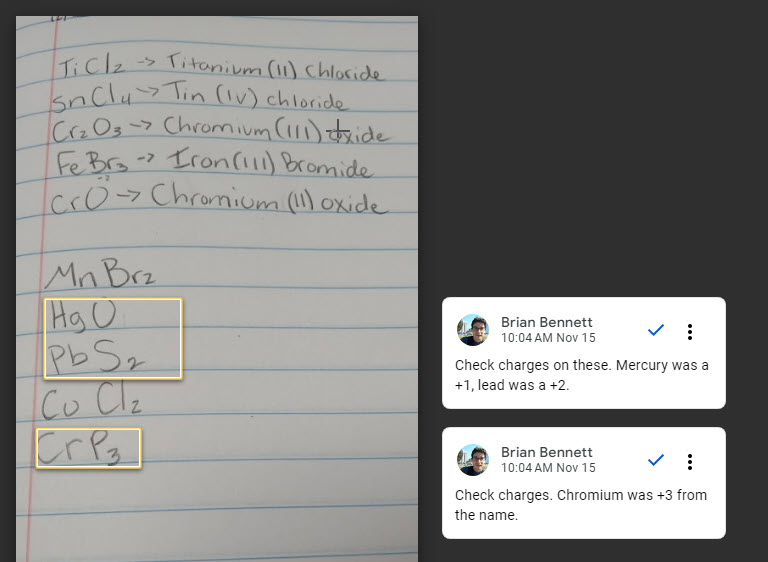 TiCl2 -> Titanium (II) Chloride
SnCl4 -> Tin (IV) chloride
Cr2O3 -> Chromium (III) oxide
FeBr3 -> Iron (III) Bromide
CrO -> Chromium (II) oxide
MnBr2
HgO
PbS2
Co Cl2
CrP3
Brian Bennett
10:04 AM Nov 15
Check charges on these. Mercury was a
+1, lead was a +2.
Brian Bennett
10:04 AM Nov 15
Check charges. Chromium was +3 from
the name.